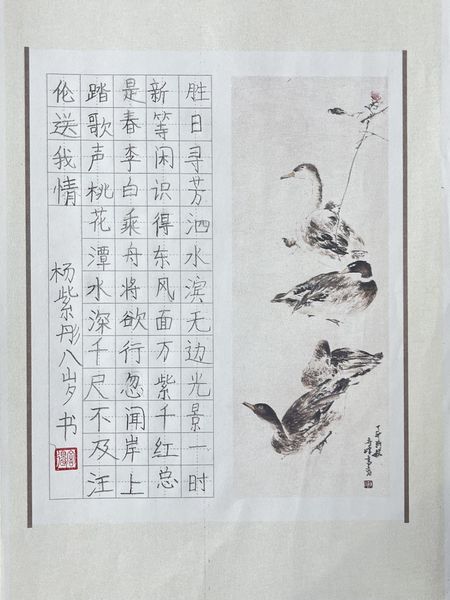 胜日寻芳泗水滨无边光景一时
新等闲识得东风面万紫千红总
是春李白乘舟将欲行忽闻岸上
踏歌声桃花潭水深千尺不及汪
伦送我情 杨紫彤八岁书